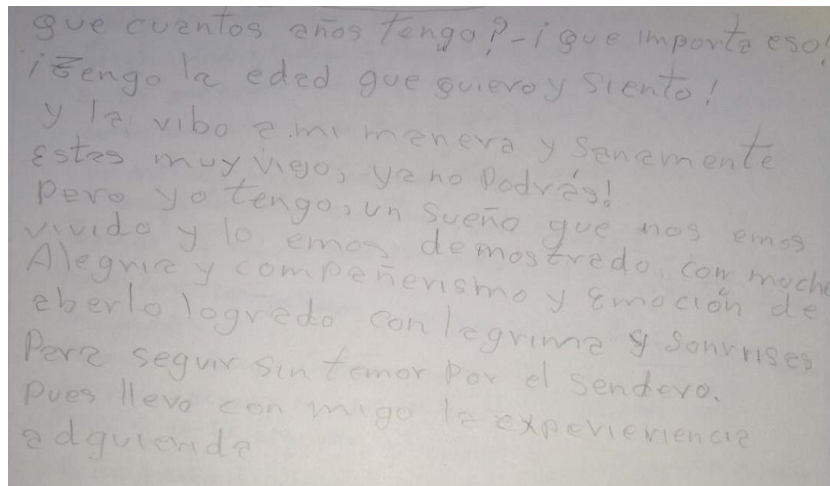 que cuantos años tengo? - ¡ que importa eso!
¡Tengo la edad que quiero y siento!
y la vibo a mi manera y sanamente
Estas muy viejo, ya no Podrás!
Pero yo tengo, un sueño que nos emos
vivido y lo emos demostrado, con mucha
Alegria y compañerismo y Emoción de
aberlo logrado con lagrima y sonrrisas
Para seguir sin temor por el sendero.
Pues llevo con migo la experieriencia
adquierida